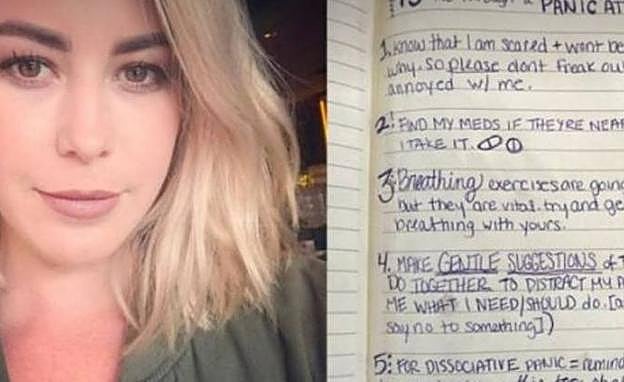 PANIC AT
1. know that I am scared + wont be
why. so please dont freak ou
annoyed w/ me.
2. FIND MY MEDS IF THEYRE NEAR
I TAKE IT.
3. Breathing exercises are going
but they are vital. try and ge
breathing with yours.
4. MAKE GENTLE SUGGESTIONS of T
DO TOGETHER TO DISTRACT MY
ME WHAT I NEED/SHOULD do. [a
say no to something])
5: FOR DISSOCIATIVE PANIC = remind